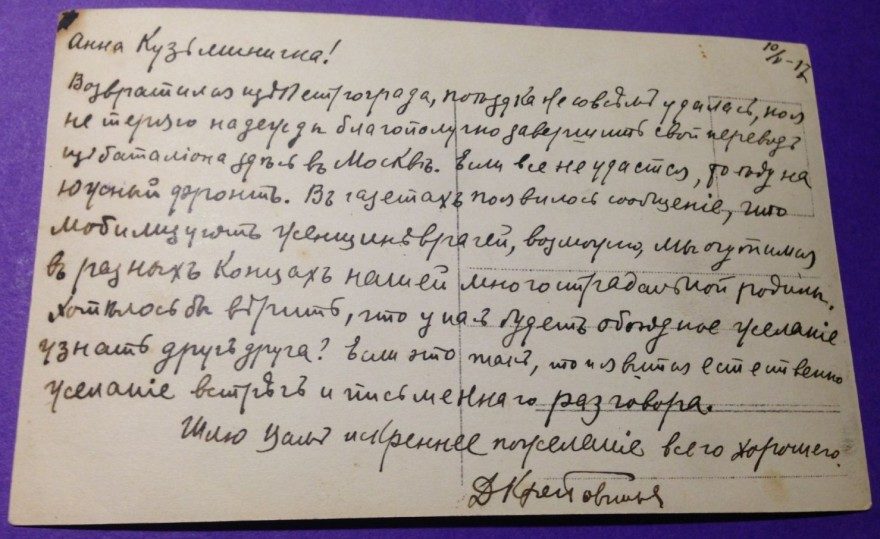 10/V-17
Анна Кузьминична!
Возвратился изъ Петрограда, поѣздка не совсѣмъ удалась, но я
не теряю надежды благополучно завершить свой переводъ
изъ баталіона здѣсь въ Москвѣ. Если все не удастся, то ѣду на
южный фронтъ. Въ газетахъ появилось сообщеніе, что
мобилизуютъ женщинъ врачей, возможно, мы очутимся
въ разныхъ концахъ нашей многострадальной родины.
Хотѣлось бы вѣрить, что у насъ будетъ обоюдное желаніе
узнать другъ друга? Если это такъ, то явится естественно
желаніе встрѣчъ и письменнаго разговора.
Шлю Вамъ искреннее пожеланіе всего хорошего.